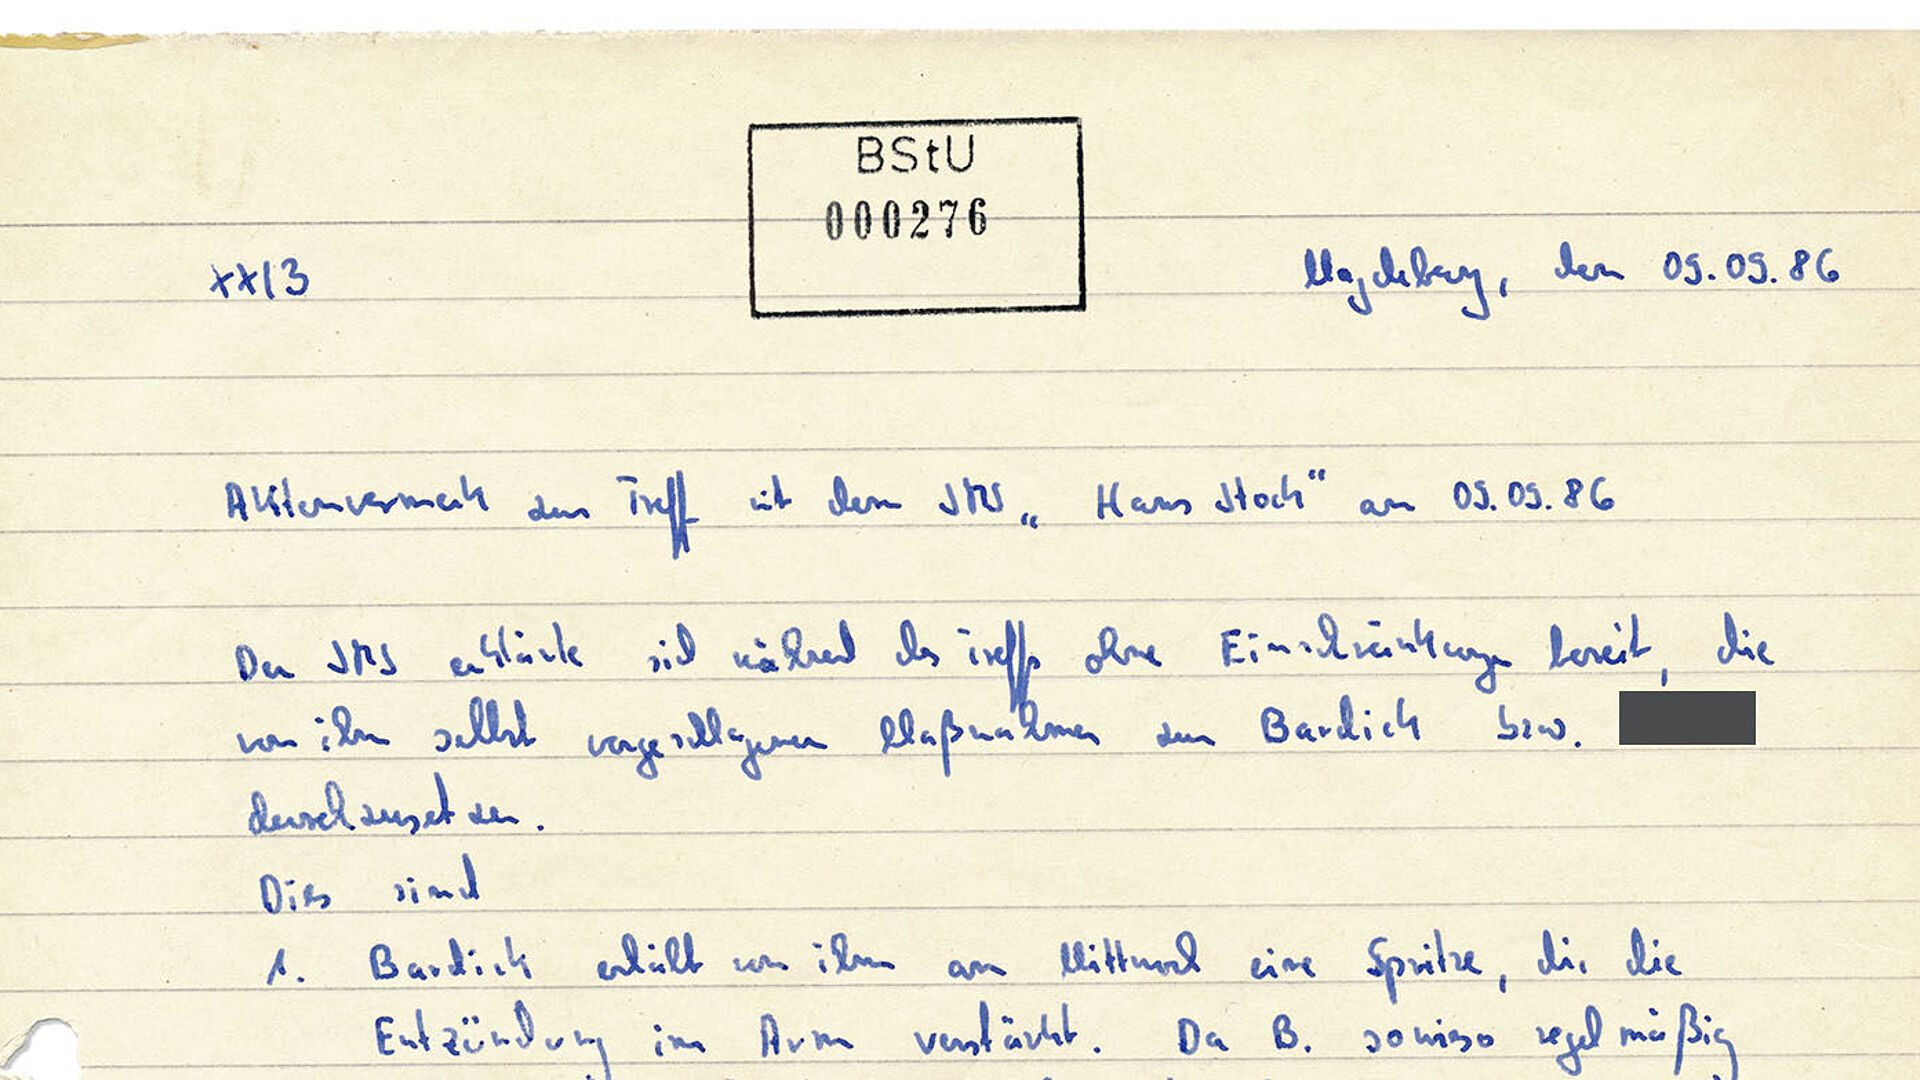 BStU
000276
XX/3
Magdeburg, den 09.09.86
Aktenvermerk zum Treff mit dem IMS „Hans Stock“ am 09.09.86
Der IMS erklärte sich während des Treffs ohne Einschränkungen bereit, die
von ihm selbst vorgeschlagenen Maßnahmen zum Bardick bzw.
durchzusetzen.
Dies sind
1. Bardick erhält von ihm am Mittwoch eine Spritze, die die
Entzündung im Arm verstärkt. Da B. sowieso regelmäßig